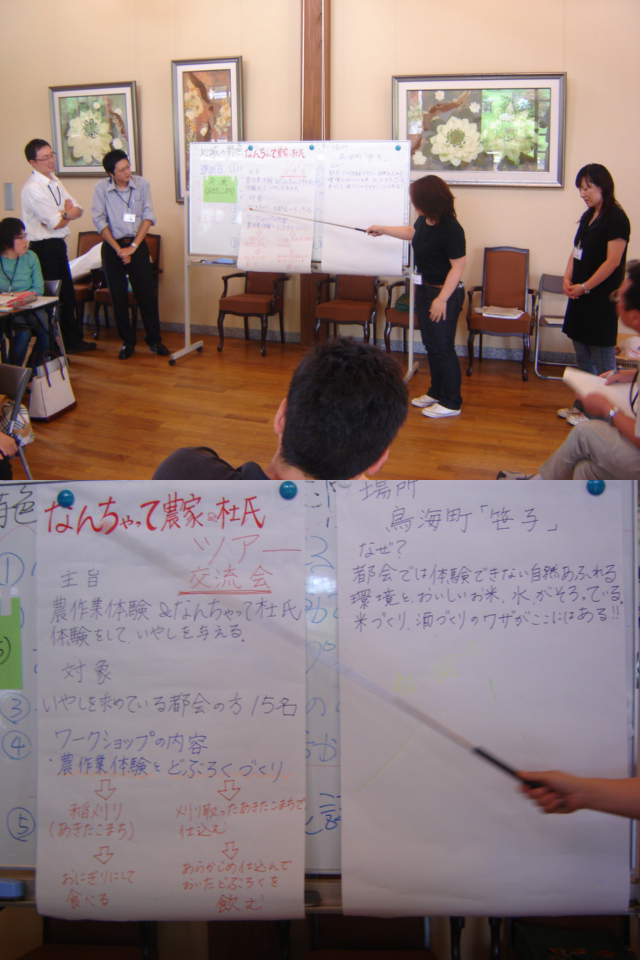 なんちゃって農家&杜氏
ツアー
交流会
主旨
農作業体験&なんちゃって杜氏
体験をして、いやしを与える。
対象
いやしを求めている都会の方 15名
ワークショップの内容
・農作業体験とどぶろくづくり
稲刈り
(あきたこまち)
おにぎりにして
食べる
刈り取ったあきたこまちで
仕込む
あらかじめ仕込んで
おいたどぶろくを
飲む
場所
鳥海町「笹子」
なぜ?
都会では体験できない自然あふれる
環境と、おいしいお米、水、がそろっている。
米づくり、酒づくりのワザがここにはある!!
①
③
④
⑤